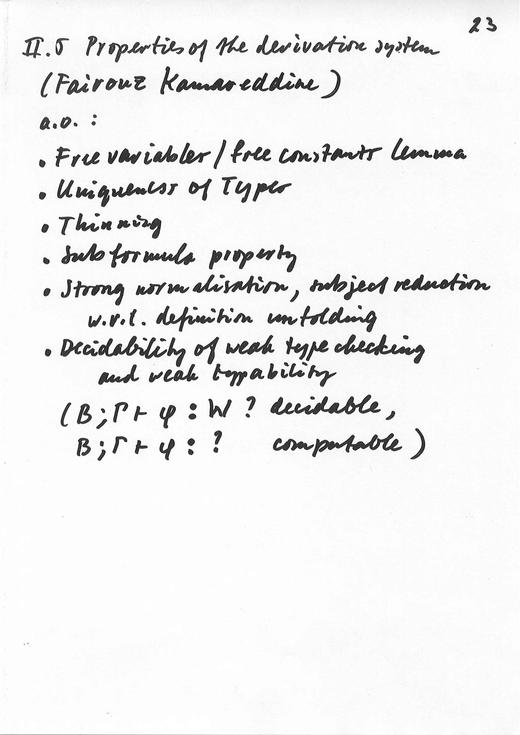 23
II.5 Properties of the derivation system
(Fairouz Kamareddine)
a.o. :
• Free variables / free constants lemma
• Uniqueness of Types
• Thinning
• Subformula property
• Strong normalisation, subject reduction
w.r.t. definition unfolding
• Decidability of weak type checking
and weak typability
(B; Γ ⊢ φ : W ? decidable,
B; Γ ⊢ φ : ? computable)